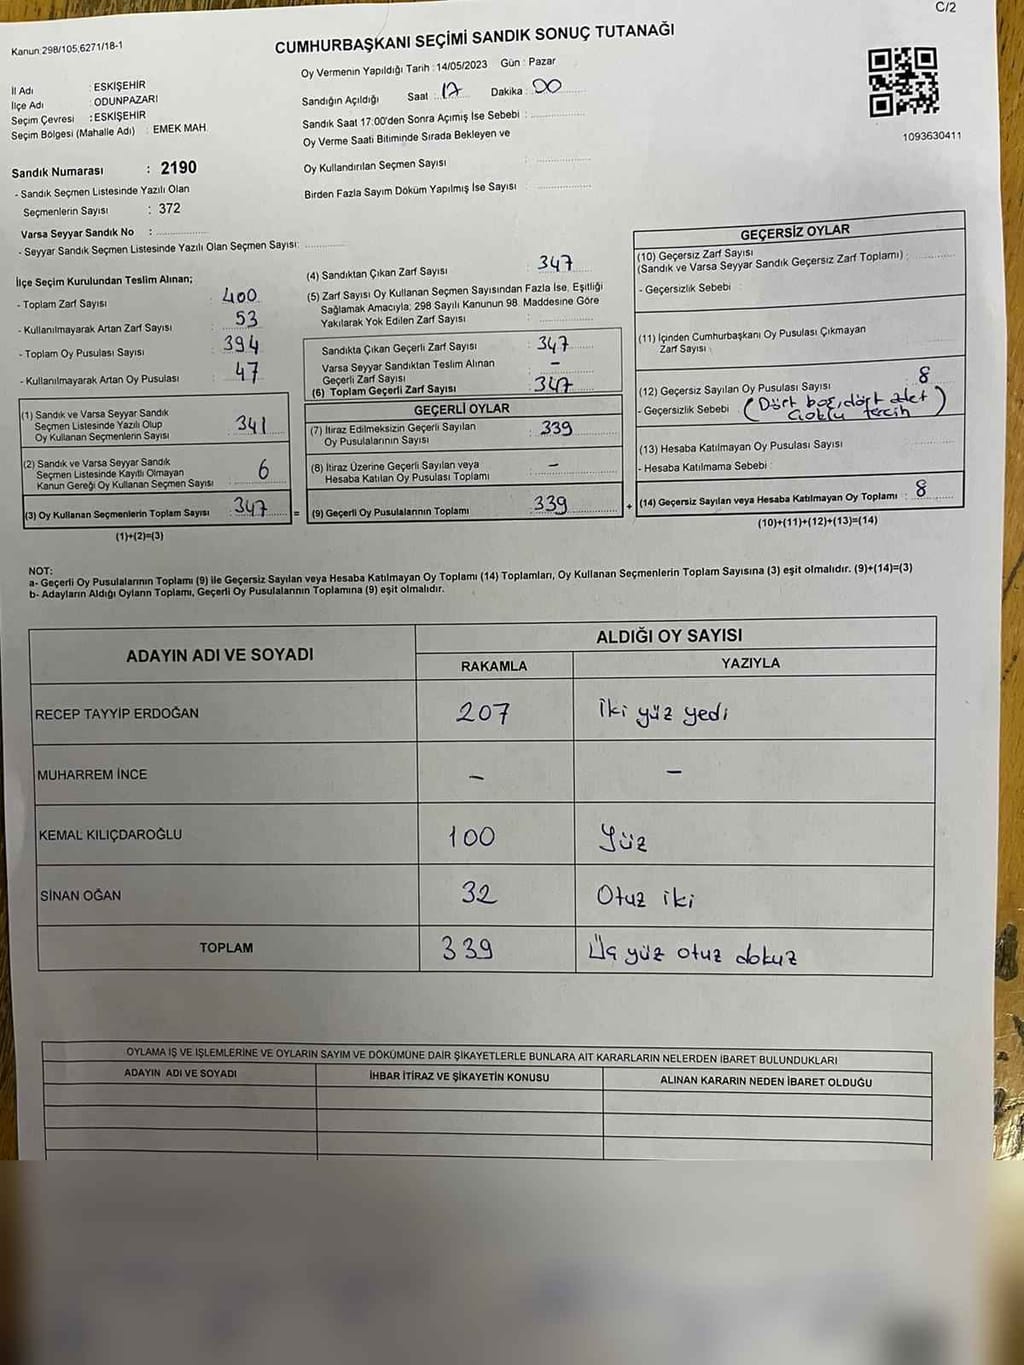 C/2
Kanun:298/105,6271/18-1
CUMHURBAŞKANI SEÇİMİ SANDIK SONUÇ TUTANAĞI
İl Adı : ESKİŞEHİR
İlçe Adı : ODUNPAZARI
Seçim Çevresi : ESKİŞEHİR
Seçim Bölgesi (Mahalle Adı) : EMEK MAH.
Oy Vermenin Yapıldığı Tarih : 14/05/2023 Gün : Pazar
Sandığın Açıldığı Saat : 17 Dakika : 00
Sandık Saat 17:00'den Sonra Açımış İse Sebebi :
Oy Verme Saati Bitiminde Sırada Bekleyen ve
Oy Kullandırılan Seçmen Sayısı :
Birden Fazla Sayım Döküm Yapılmış İse Sayısı :
1093630411
Sandık Numarası : 2190
- Sandık Seçmen Listesinde Yazılı Olan
Seçmenlerin Sayısı : 372
Varsa Seyyar Sandık No :
- Seyyar Sandık Seçmen Listesinde Yazılı Olan Seçmen Sayısı:
İlçe Seçim Kurulundan Teslim Alınan;
- Toplam Zarf Sayısı : 400
- Kullanılmayarak Artan Zarf Sayısı : 53
- Toplam Oy Pusulası Sayısı : 394
- Kullanılmayarak Artan Oy Pusulası : 47
(1) Sandık ve Varsa Seyyar Sandık
Seçmen Listesinde Yazılı Olup
Oy Kullanan Seçmenlerin Sayısı : 341
(2) Sandık ve Varsa Seyyar Sandık
Seçmen Listesinde Kayıtlı Olmayan
Kanun Gereği Oy Kullanan Seçmen Sayısı : 6
(3) Oy Kullanan Seçmenlerin Toplam Sayısı : 347 =
(1)+(2)=(3)
(4) Sandıktan Çıkan Zarf Sayısı : 347
(5) Zarf Sayısı Oy Kullanan Seçmen Sayısından Fazla İse, Eşitliği
Sağlamak Amacıyla; 298 Sayılı Kanunun 98. Maddesine Göre
Yakılarak Yok Edilen Zarf Sayısı :
Sandıkta Çıkan Geçerli Zarf Sayısı : 347
Varsa Seyyar Sandıktan Teslim Alınan
Geçerli Zarf Sayısı : -
(6) Toplam Geçerli Zarf Sayısı : 347
GEÇERLİ OYLAR
(7) İtiraz Edilmeksizin Geçerli Sayılan
Oy Pusulalarının Sayısı : 339
(8) İtiraz Üzerine Geçerli Sayılan veya
Hesaba Katılan Oy Pusulası Toplamı : -
(9) Geçerli Oy Pusulalarının Toplamı : 339 +
GEÇERSİZ OYLAR
(10) Geçersiz Zarf Sayısı
(Sandık ve Varsa Seyyar Sandık Geçersiz Zarf Toplamı) :
- Geçersizlik Sebebi :
(11) İçinden Cumhurbaşkanı Oy Pusulası Çıkmayan
Zarf Sayısı :
(12) Geçersiz Sayılan Oy Pusulası Sayısı : 8
- Geçersizlik Sebebi : (Dört boş, dört adet
çoklu tercih)
(13) Hesaba Katılmayan Oy Pusulası Sayısı :
- Hesaba Katılmama Sebebi :
(14) Geçersiz Sayılan veya Hesaba Katılmayan Oy Toplamı : 8
(10)+(11)+(12)+(13)=(14)
NOT:
a- Geçerli Oy Pusulalarının Toplamı (9) ile Geçersiz Sayılan veya Hesaba Katılmayan Oy Toplamı (14) Toplamları, Oy Kullanan Seçmenlerin Toplam Sayısına (3) eşit olmalıdır. (9)+(14)=(3)
b- Adayların Aldığı Oyların Toplamı, Geçerli Oy Pusulalarının Toplamına (9) eşit olmalıdır.
ADAYIN ADI VE SOYADI
ALDIĞI OY SAYISI
RAKAMLA YAZIYLA
RECEP TAYYİP ERDOĞAN 207 İki yüz yedi
MUHARREM İNCE - -
KEMAL KILIÇDAROĞLU 100 Yüz
SİNAN OĞAN 32 Otuz iki
TOPLAM 339 Üç yüz otuz dokuz
OYLAMA İŞ VE İŞLEMLERİNE VE OYLARIN SAYIM VE DÖKÜMÜNE DAİR ŞİKAYETLERLE BUNLARA AİT KARARLARIN NELERDEN İBARET BULUNDUKLARI
ADAYIN ADI VE SOYADI İHBAR İTİRAZ VE ŞİKAYETİN KONUSU ALINAN KARARIN NEDEN İBARET OLDUĞU